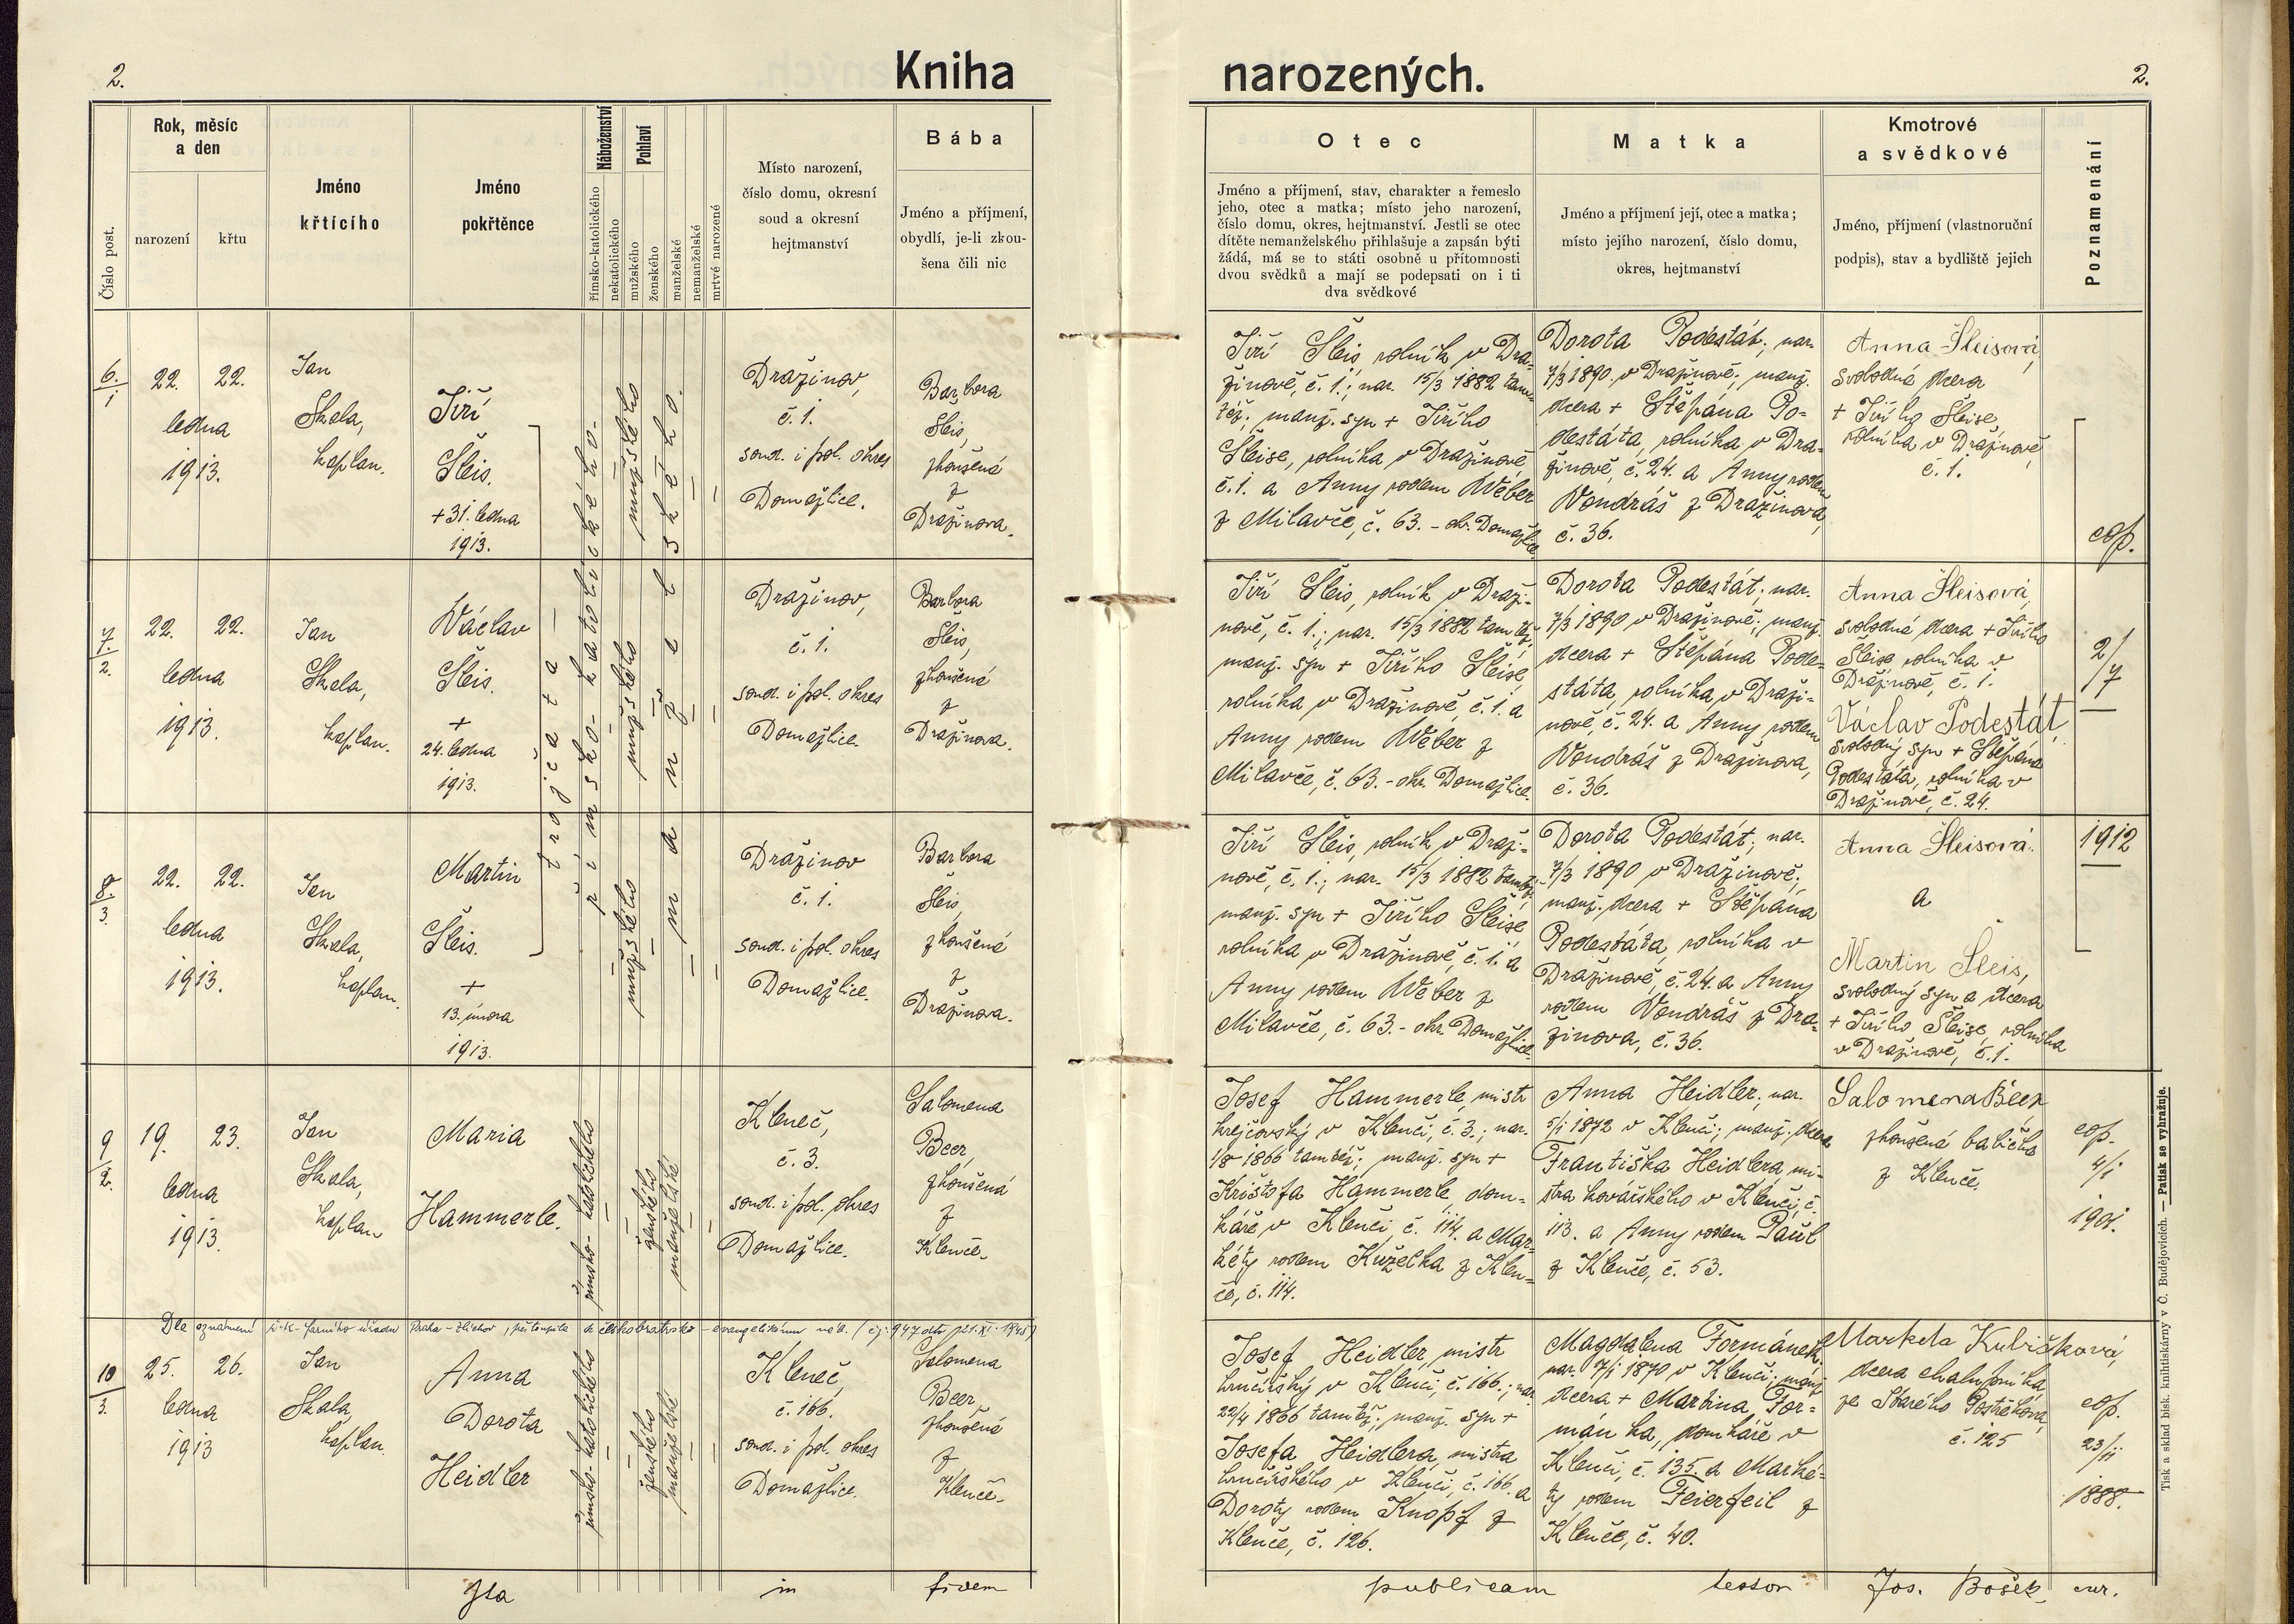 2.
Kniha
narozených.
2.
Číslo post.
Rok, měsíc
a den
narození
křtu
Jméno
křtícího
Jméno
pokřtěnce
Náboženství
římsko-katolického
nekatolického
Pohlaví
mužského
ženského
manželské
nemanželské
mrtvé narozené
Místo narození,
číslo domu, okresní
soud a okresní
hejtmanství
Bába
Jméno a příjmení,
obydlí, je-li zkou-
šena čili nic
Otec
Jméno a příjmení, stav, charakter a řemeslo
jeho, otec a matka; místo jeho narození,
číslo domu, okres, hejtmanství. Jestli se otec
dítěte nemanželského přihlašuje a zapsán býti
žádá, má se to státi osobně u přítomnosti
dvou svědků a mají se podepsati on i ti
dva svědkové
Matka
Jméno a příjmení její, otec a matka;
místo jejího narození, číslo domu,
okres, hejtmanství
Kmotrové
a svědkové
Jméno, příjmení (vlastnoruční
podpis), stav a bydliště jejich
Poznamenání
6./1
22. 22.
ledna
1913.
Jan
Skala,
kaplan.
Jiří
Šleis.
+ 31. ledna
1913.
trojčata
římsko-katolického
mužského
manželské
Dražinov,
č. 1.
soud. i pol. okres
Domažlice.
Barbora
Šleis,
zkoušená
z
Dražinova.
Jiří Šleis, rolník v Dra-
žinově, č. 1.; nar. 15/3 1882 tam-
též; manž. syn + Jiřího
Šleise, rolníka v Dražinově,
č. 1. a Anny rodem Weber
z Milavče, č. 63. - okr. Domažlice.
Dorota Podestát; nar.
7/3 1890 v Dražinově; manž.
dcera + Štěpána Po-
destáta, rolníka v Dra-
žinově, č. 24. a Anny rodem
Vondráš z Dražinova,
č. 36.
Anna Šleisová,
svobodná dcera
+ Jiřího Šleise,
rolníka v Dražinově,
č. 1.
cop.
7./2.
22. 22.
ledna
1913.
Jan
Skala,
kaplan.
Václav
Šleis.
+
24. ledna
1913.
mužského
Dražinov,
č. 1.
soud. i pol. okres
Domažlice.
Barbora
Šleis,
zkoušená
z
Dražinova.
Jiří Šleis, rolník v Draži-
nově, č. 1.; nar. 15/3 1882 tamtéž;
manž. syn + Jiřího Šleise,
rolníka v Dražinově, č. 1. a
Anny rodem Weber z
Milavče, č. 63. - okr. Domažlice.
Dorota Podestát; nar.
7/3 1890 v Dražinově; manž.
dcera + Štěpána Pode-
státa, rolníka v Draži-
nově, č. 24. a Anny rodem
Vondráš z Dražinova,
č. 36.
Anna Šleisová,
svobodná dcera + Jiřího
Šleise rolníka v
Dražinově, č. 1.
Václav Podestát,
svobodný syn + Štěpána
Podestáta, rolníka v
Dražinově, č. 24.
2/
/7
8./3.
22. 22.
ledna
1913.
Jan
Skala,
kaplan.
Martin
Šleis.
+
13. února
1913.
mužského
Dražinov
č. 1.
soud. i pol. okres
Domažlice.
Barbora
Šleis,
zkoušená
z
Dražinova.
Jiří Šleis, rolník v Draži-
nově, č. 1.; nar. 15/3 1882 tamtéž;
manž. syn + Jiřího Šleise,
rolníka v Dražinově, č. 1. a
Anny rodem Weber z
Milavče, č. 63. - okr. Domažlice.
Dorota Podestát; nar.
7/3 1890 v Dražinově;
manž. dcera + Štěpána
Podestáta, rolníka v
Dražinově, č. 24. a Anny
rodem Vondráš z Dra-
žinova, č. 36.
Anna Šleisová.
a
Martin Šleis,
svobodný syn a dcera
+ Jiřího Šleise, rolníka
v Dražinově, č. 1.
1912
9/2.
19. 23.
ledna
1913.
Jan
Skala,
kaplan
Maria
Hammerle.
římsko-katolického
ženského
manželské
Kleneč,
č. 3.
soud. i pol. okres
Domažlice.
Salomena
Beer,
zkoušená
z
Klenče.
Josef Hammerle, mistr
krejčovský v Klenči, č. 3.; nar.
1/8 1866 tamtéž; manž. syn +
Kristofa Hammerle, dom-
káře v Klenči, č. 114. a Mar-
kéty rodem Kuželka z Klen-
če, č. 114.
Anna Heidler; nar.
5/1 1872 v Klenči; manž. dcera
Františka Heidlera, mi-
stra kovářského v Klenči, č.
113. a Anny rodem Paül
z Klenče, č. 53.
Salomena Beer
zkoušená babička
z Klenče.
cop.
4/1
1901.
Dle oznámení ř.-k. farního úřadu Praha-Zlíchov, přestoupila k českobratrsko-evangelickému náb. (čj. 947 dto 21.XI.1945)
10/3.
25. 26.
ledna
1913
Jan
Skala,
kaplan.
Anna
Dorota
Heidler
římsko-katolického
ženského
manželské
Kleneč,
č. 166.
soud. i pol. okres
Domažlice.
Salomena
Beer,
zkoušená
z
Klenče.
Josef Heidler, mistr
hrnčířský v Klenči, č. 166.; nar.
22/4 1866 tamtéž; manž. syn +
Josefa Heidlera, mistra
hrnčířského v Klenči, č. 166. a
Doroty rodem Knopf z
Klenče, č. 126.
Magdalena Formánek,
nar. 17/1 1870 v Klenči; manž.
dcera + Martina For-
mánka, domkáře v
Klenči, č. 135. a Marké-
ty rodem Feierfeil z
Klenče, č. 40.
Marketa Kubišková,
dcera chalupníka
ze Starého Postřekova,
č. 125
cop.
23/11
1888.
Ita in fidem publicam testor Jos. Bošek, cur.
Tisk a sklad bisk. knihtiskárny v Č. Budějovicích. — Patisk se vyhražuje.